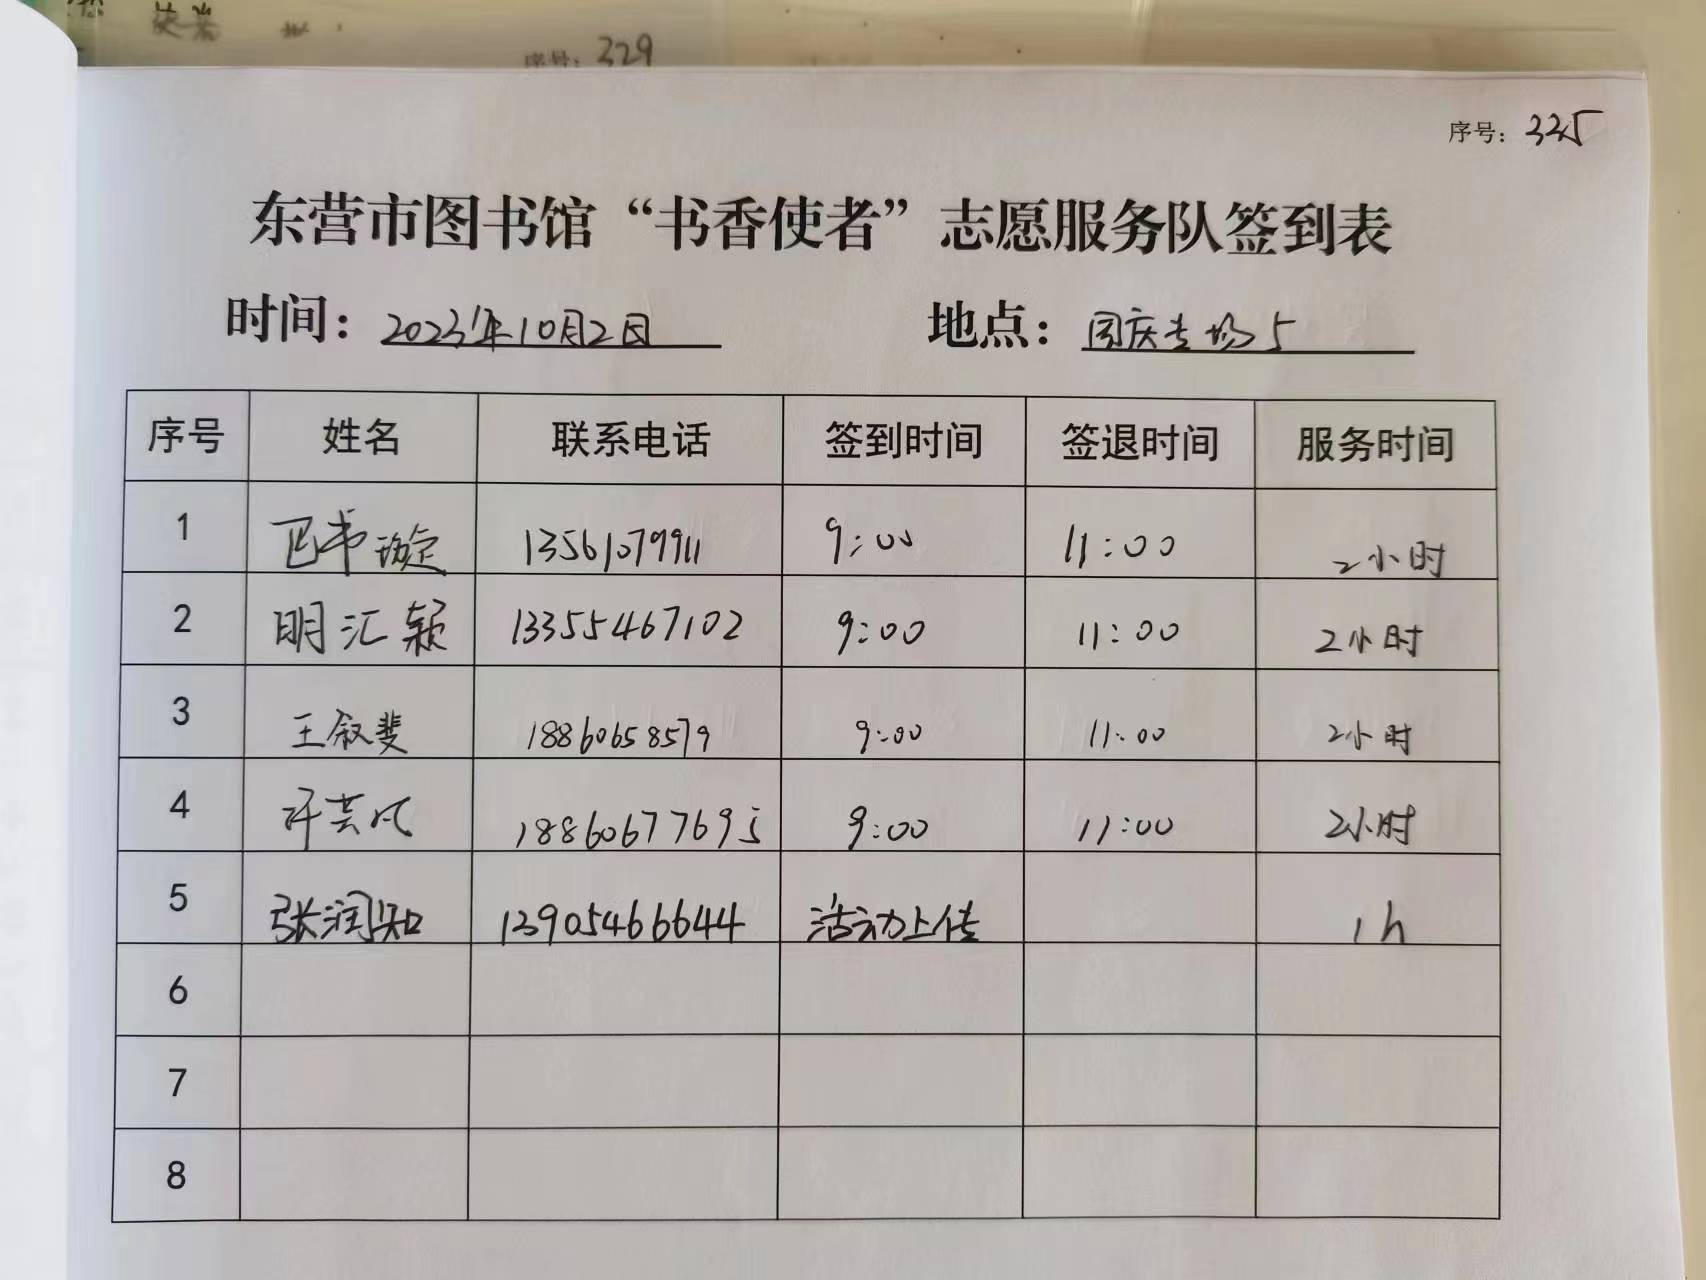 序号: 329
序号: 335
东营市图书馆“书香使者”志愿服务队签到表
时间: 2023年10月2日 地点: 国庆专场5
序号 姓名 联系电话 签到时间 签退时间 服务时间
1 书璇 13561079911 9:00 11:00 2小时
2 明汇颖 13355467102 9:00 11:00 2小时
3 王叙斐 18860658579 9:00 11:00 2小时
4 许芸凡 18860677695 9:00 11:00 2小时
5 张润知 13905466644 活动上传 1h
6
7
8